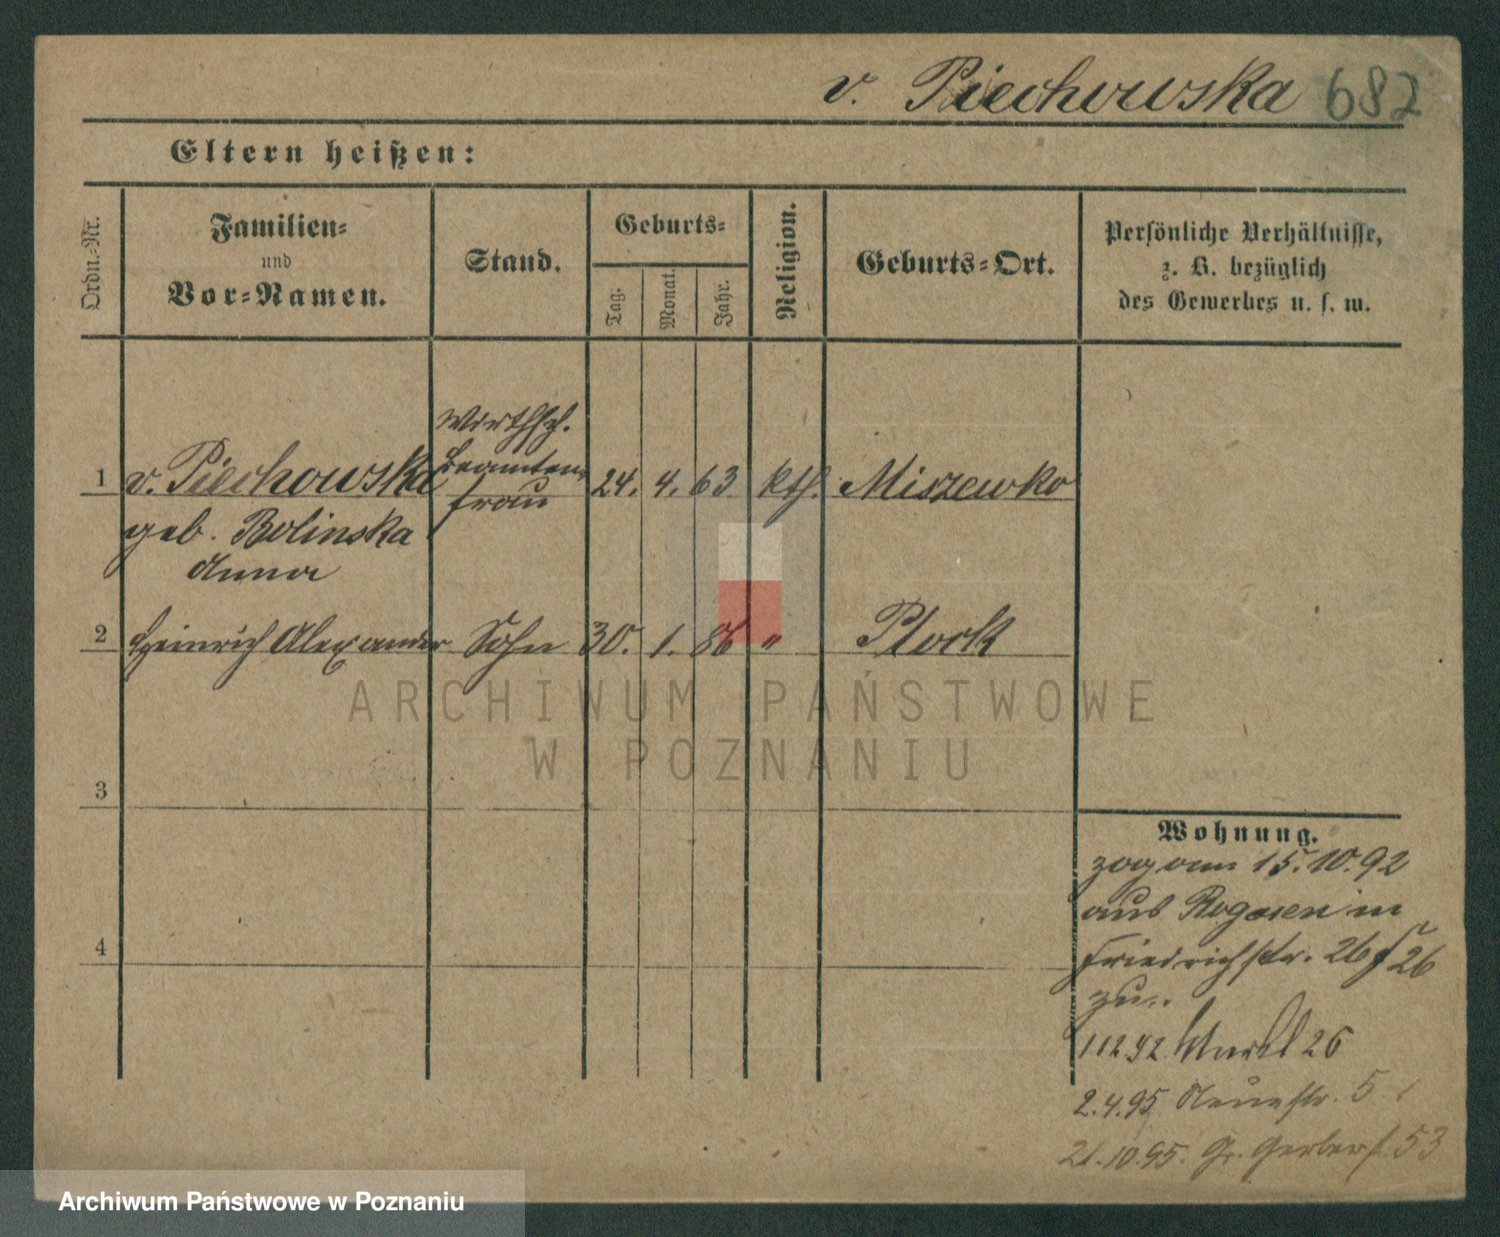 v. Piechowska 682
Eltern heißen:
Ordn.-Nr.
Familien-
und
Vor-Namen.
Stand.
Geburts-
Tag.
Monat.
Jahr.
Religion.
Geburts-Ort.
Persönliche Verhältnisse,
z. B. bezüglich
des Gewerbes u. s. w.
Wirthsch.
1 v. Piechowska Beamten 24. 4. 63 kth. Miszewko
frau
geb. Bolinska
Anna
2 Heinrich Alexander Sohn 30. 1. 86 " Plock
ARCHIWUM PAŃSTWOWE
W POZNANIU
3
Wohnung.
zog am 15.10.92
aus Rogasen in
4
Friedrichstr. 26 26
zu.
1 12 92 Markt 26
2.4.95 Neuestr. 5
21.10.95. Gr. Gerberstr. 53
Archiwum Państwowe w Poznaniu